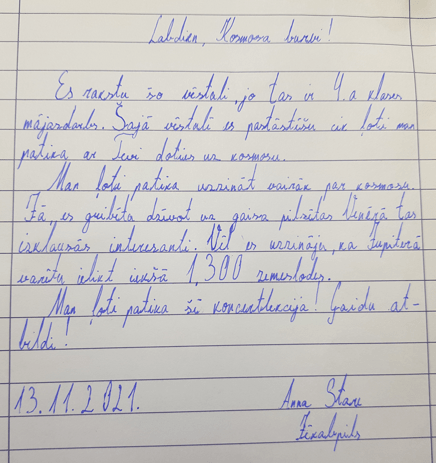 Labdien, Kosmosa burvi!
Es rakstu šo vēstuli, jo tas ir 4.a klases
mājasdarbs. Šajā vēstulē es pastāstīšu cik ļoti man
patika ar Tevi doties uz kosmosu.
Man ļoti patika uzzināt vairāk par kosmosu.
Jā, es gribētu dzīvot uz gaisa pilsētas Venērā tas
izklausās interesanti. Vēl es uzzināju, ka Jupiterā
varētu ielikt iekšā 1,300 zemeslodes.
Man ļoti patika šī koncertlekcija! Gaidu at-
bildi!
13.11.2021.
Anna Stare
Jēkabpils